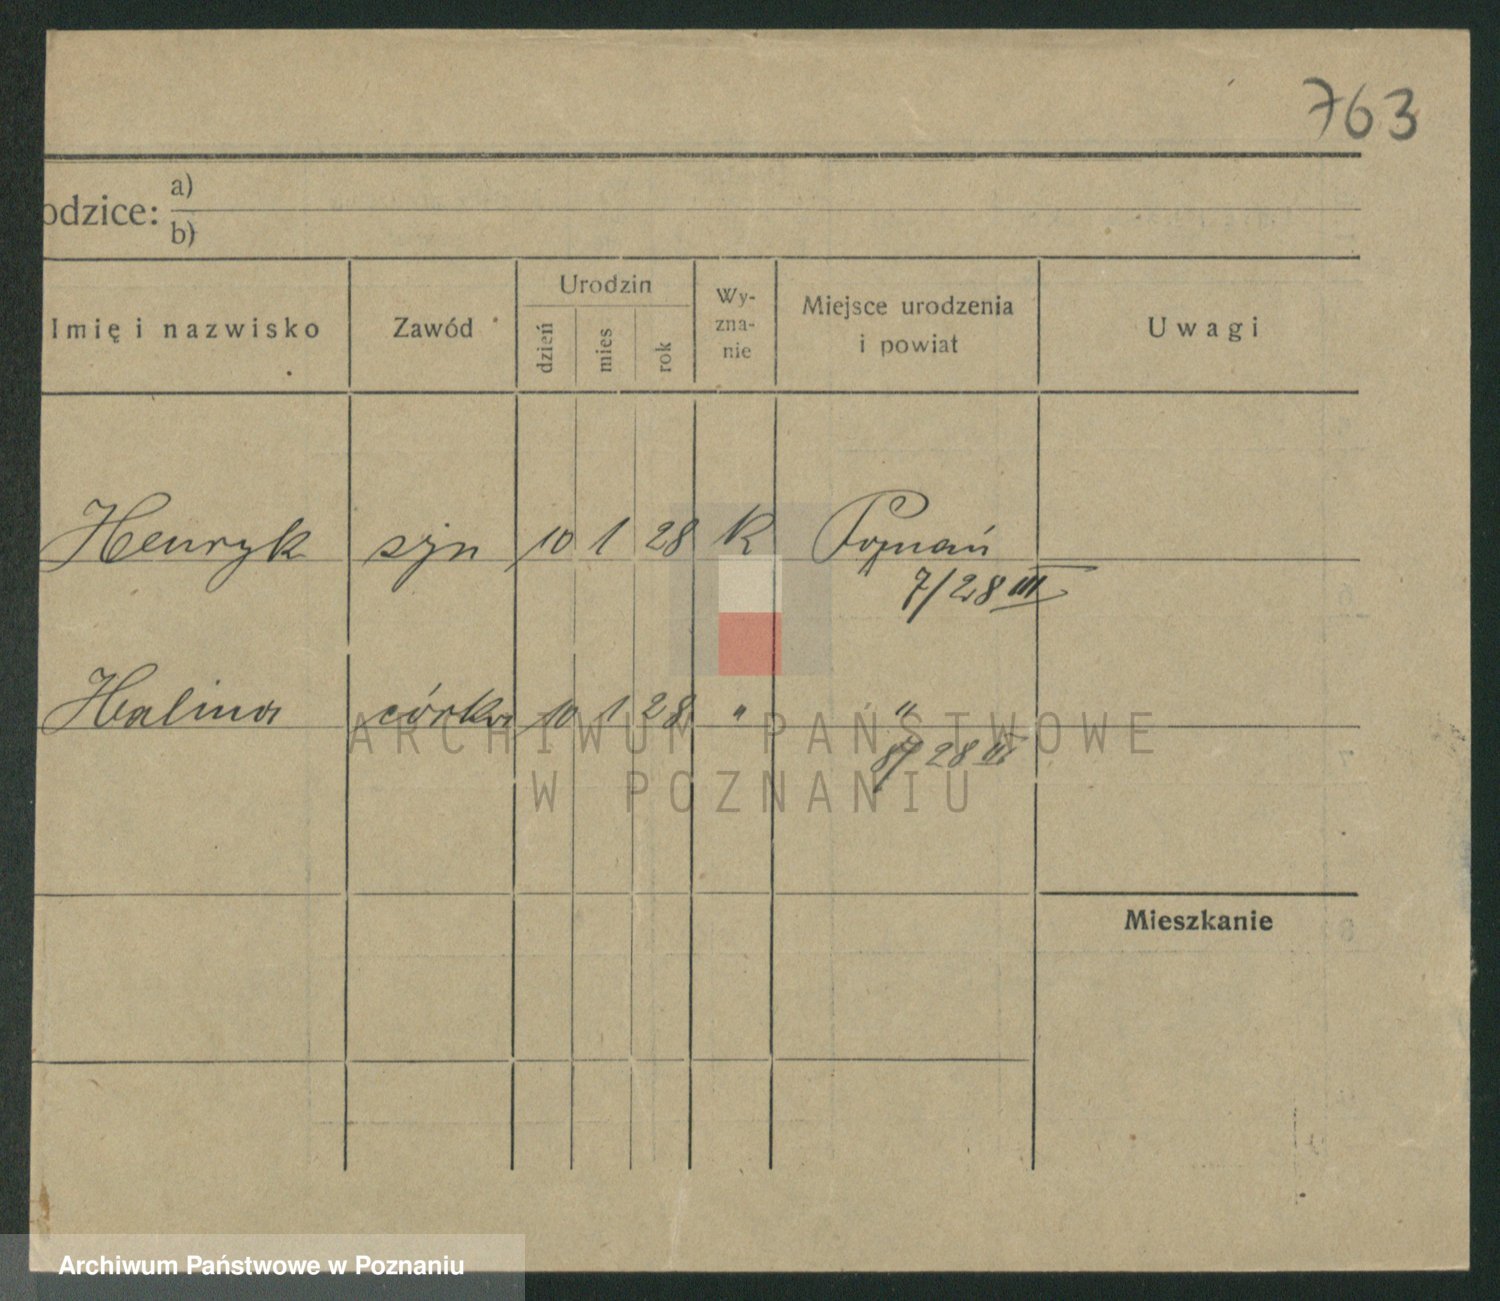 763
odzice: a)
b)
Imię i nazwisko Zawód Urodzin dzień mies rok Wy-zna-nie Miejsce urodzenia i powiat Uwagi
Henryk syn 10 1 28 K Poznań
7/28 III
Halina córka 10 1 28 " "
8/28 III
ARCHIWUM PAŃSTWOWE
W POZNANIU
Mieszkanie
Archiwum Państwowe w Poznaniu